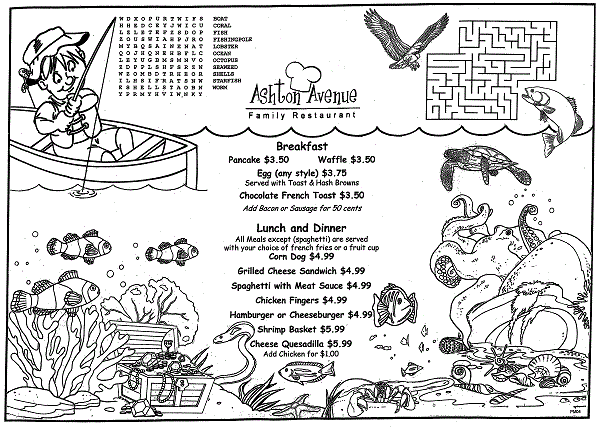 BOAT
CORAL
FISH
FISHINGPOLE
LOBSTER
OCEAN
OCTOPUS
SEAWEED
SHELLS
STARFISH
WORM
Ashton Avenue
Family Restaurant
Breakfast
Pancake $3.50 Waffle $3.50
Egg (any style) $3.75
Served with Toast & Hash Browns
Chocolate French Toast $3.50
Add Bacon or Sausage for 50 cents
Lunch and Dinner
All Meals except (spaghetti) are served
with your choice of french fries or a fruit cup
Corn Dog $4.99
Grilled Cheese Sandwich $4.99
Spaghetti with Meat Sauce $4.99
Chicken Fingers $4.99
Hamburger or Cheeseburger $4.99
Shrimp Basket $5.99
Cheese Quesadilla $5.99
Add Chicken for $1.00